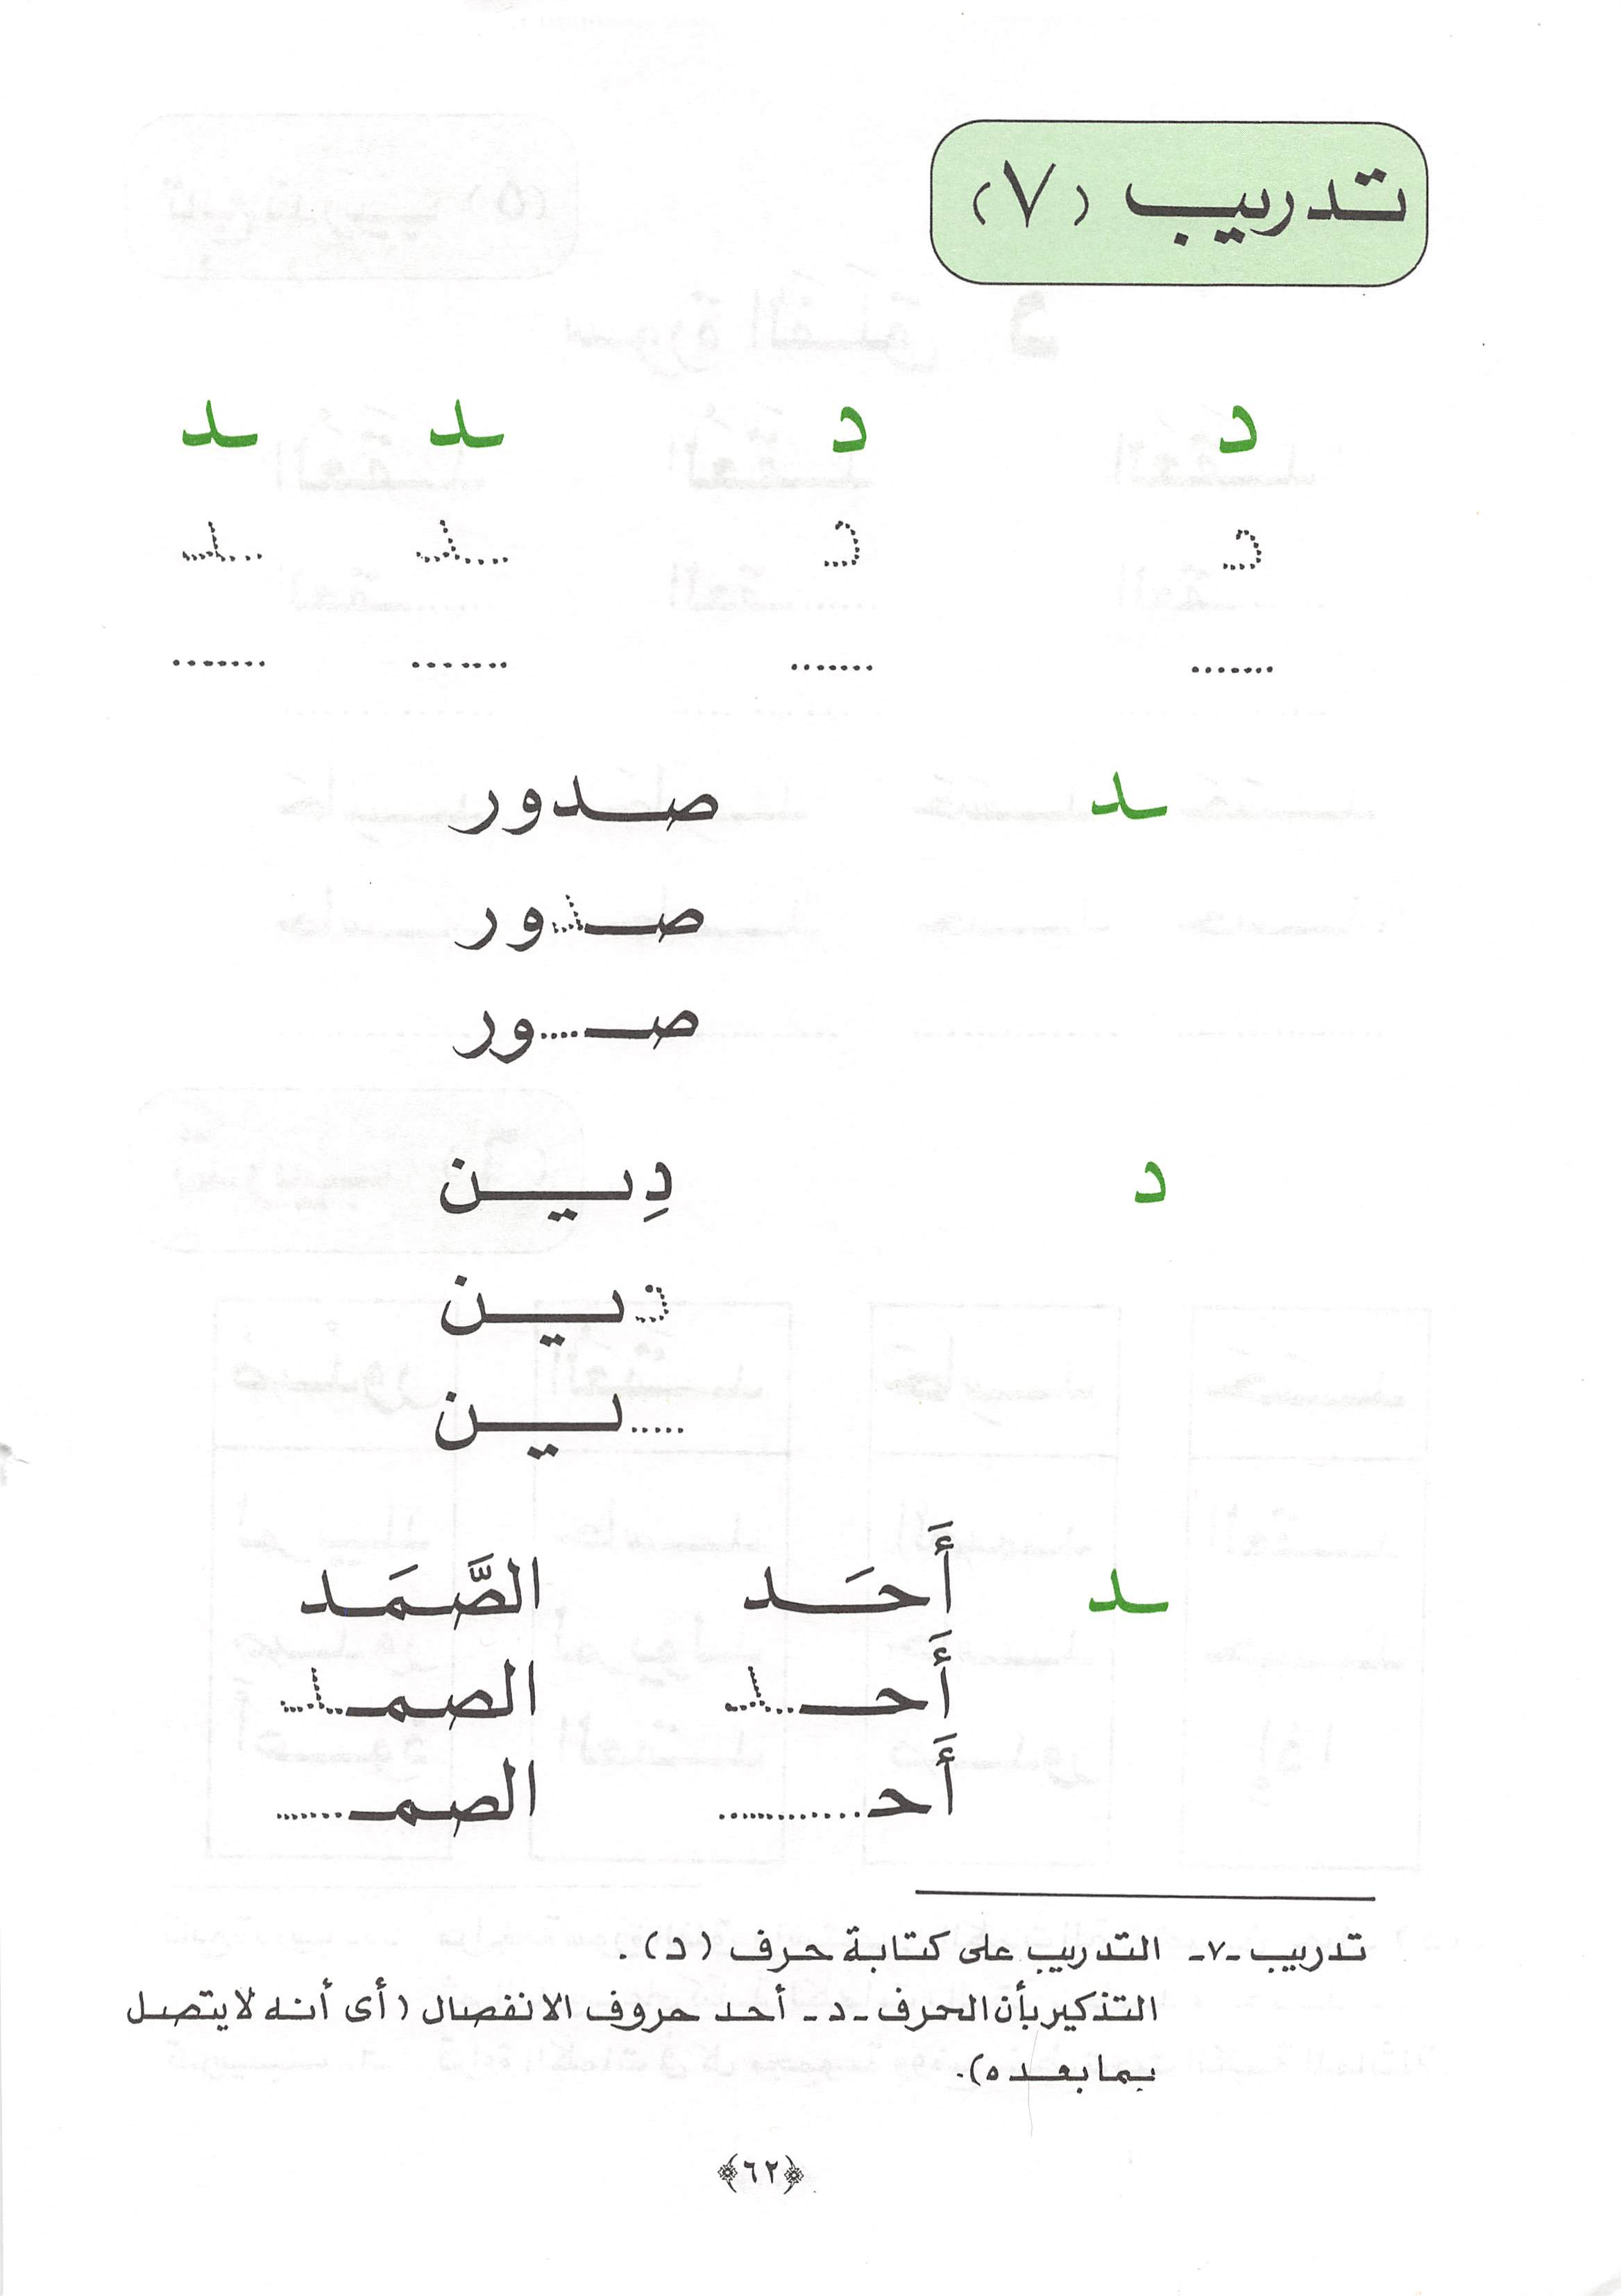 تدريب (٧)
د د ـد ـد
د د ـد ـد
....... ....... ....... .......
ـد صـدور
صـدور
صـ....ور
د دِيـن
ديـن
.....يـن
ـد أَحَـد الصَّمَـد
أَحـد الصمـد
أَحـ............ الصمـ.......
تدريب -٧- التدريب على كتابة حرف (د).
التذكير بأن الحرف -د- أحد حروف الانفصال (أى أنه لا يتصل
بما بعده).
﴿٦٢﴾